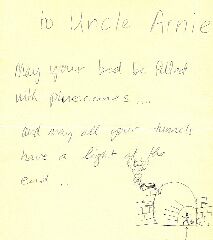 to Uncle Arnie
May your bed be filled
with
and may all your tunnels
have a light at the
end ..